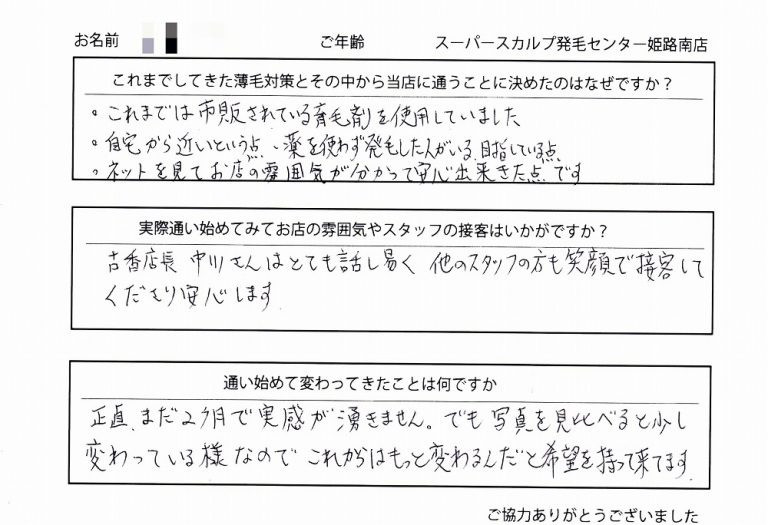 お名前 ご年齢 スーパースカルプ発毛センター姫路南店
これまでしてきた薄毛対策とその中から当店に通うことに決めたのはなぜですか?
・これまでは市販されている育毛剤を使用していました
・自宅から近いという点、薬を使わず発毛した人がいる、目指している点
・ネットを見てお店の雰囲気が分かって安心出来きた点です
実際通い始めてみてお店の雰囲気やスタッフの接客はいかがですか?
古香店長 中川さんはとても話し易く 他のスタッフの方も笑顔で接客して
くださり安心します
通い始めて変わってきたことは何ですか
正直、まだ2ヶ月で実感が湧きません。でも写真を見比べると少し
変わっている様なので これからはもっと変わるんだと希望を持って来てます
ご協力ありがとうございました